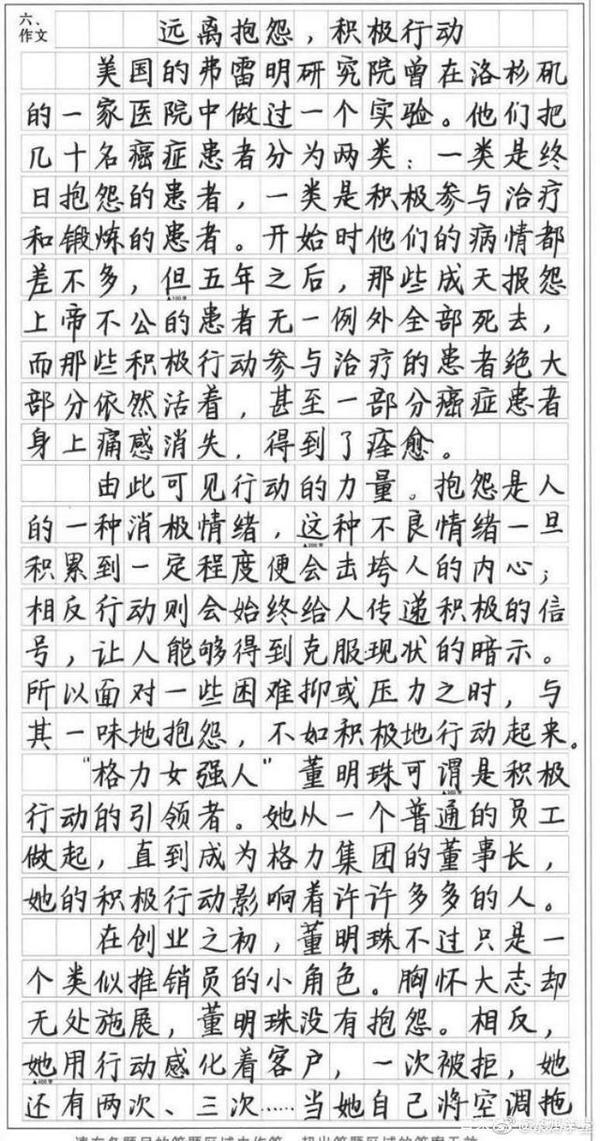 六、
作文
远离抱怨，积极行动
美国的弗雷明研究院曾在洛杉矶
的一家医院中做过一个实验。他们把
几十名癌症患者分为两类：一类是终
日抱怨的患者，一类是积极参与治疗
和锻炼的患者。开始时他们的病情都
差不多，但五年之后，那些成天报怨
上帝不公的患者无一例外全部死去，
而那些积极行动参与治疗的患者绝大
部分依然活着，甚至一部分癌症患者
身上痛感消失，得到了痊愈。
由此可见行动的力量。抱怨是人
的一种消极情绪，这种不良情绪一旦
积累到一定程度便会击垮人的内心；
相反行动则会始终给人传递积极的信
号，让人能够得到克服现状的暗示。
所以面对一些困难抑或压力之时，与
其一味地抱怨，不如积极地行动起来。
“格力女强人”董明珠可谓是积极
行动的引领者。她从一个普通的员工
做起，直到成为格力集团的董事长，
她的积极行动影响着许许多多的人。
在创业之初，董明珠不过只是一
个类似推销员的小角色。胸怀大志却
无处施展，董明珠没有抱怨。相反，
她用行动感化着客户，一次被拒，她
还有两次、三次……当她自己将空调拖